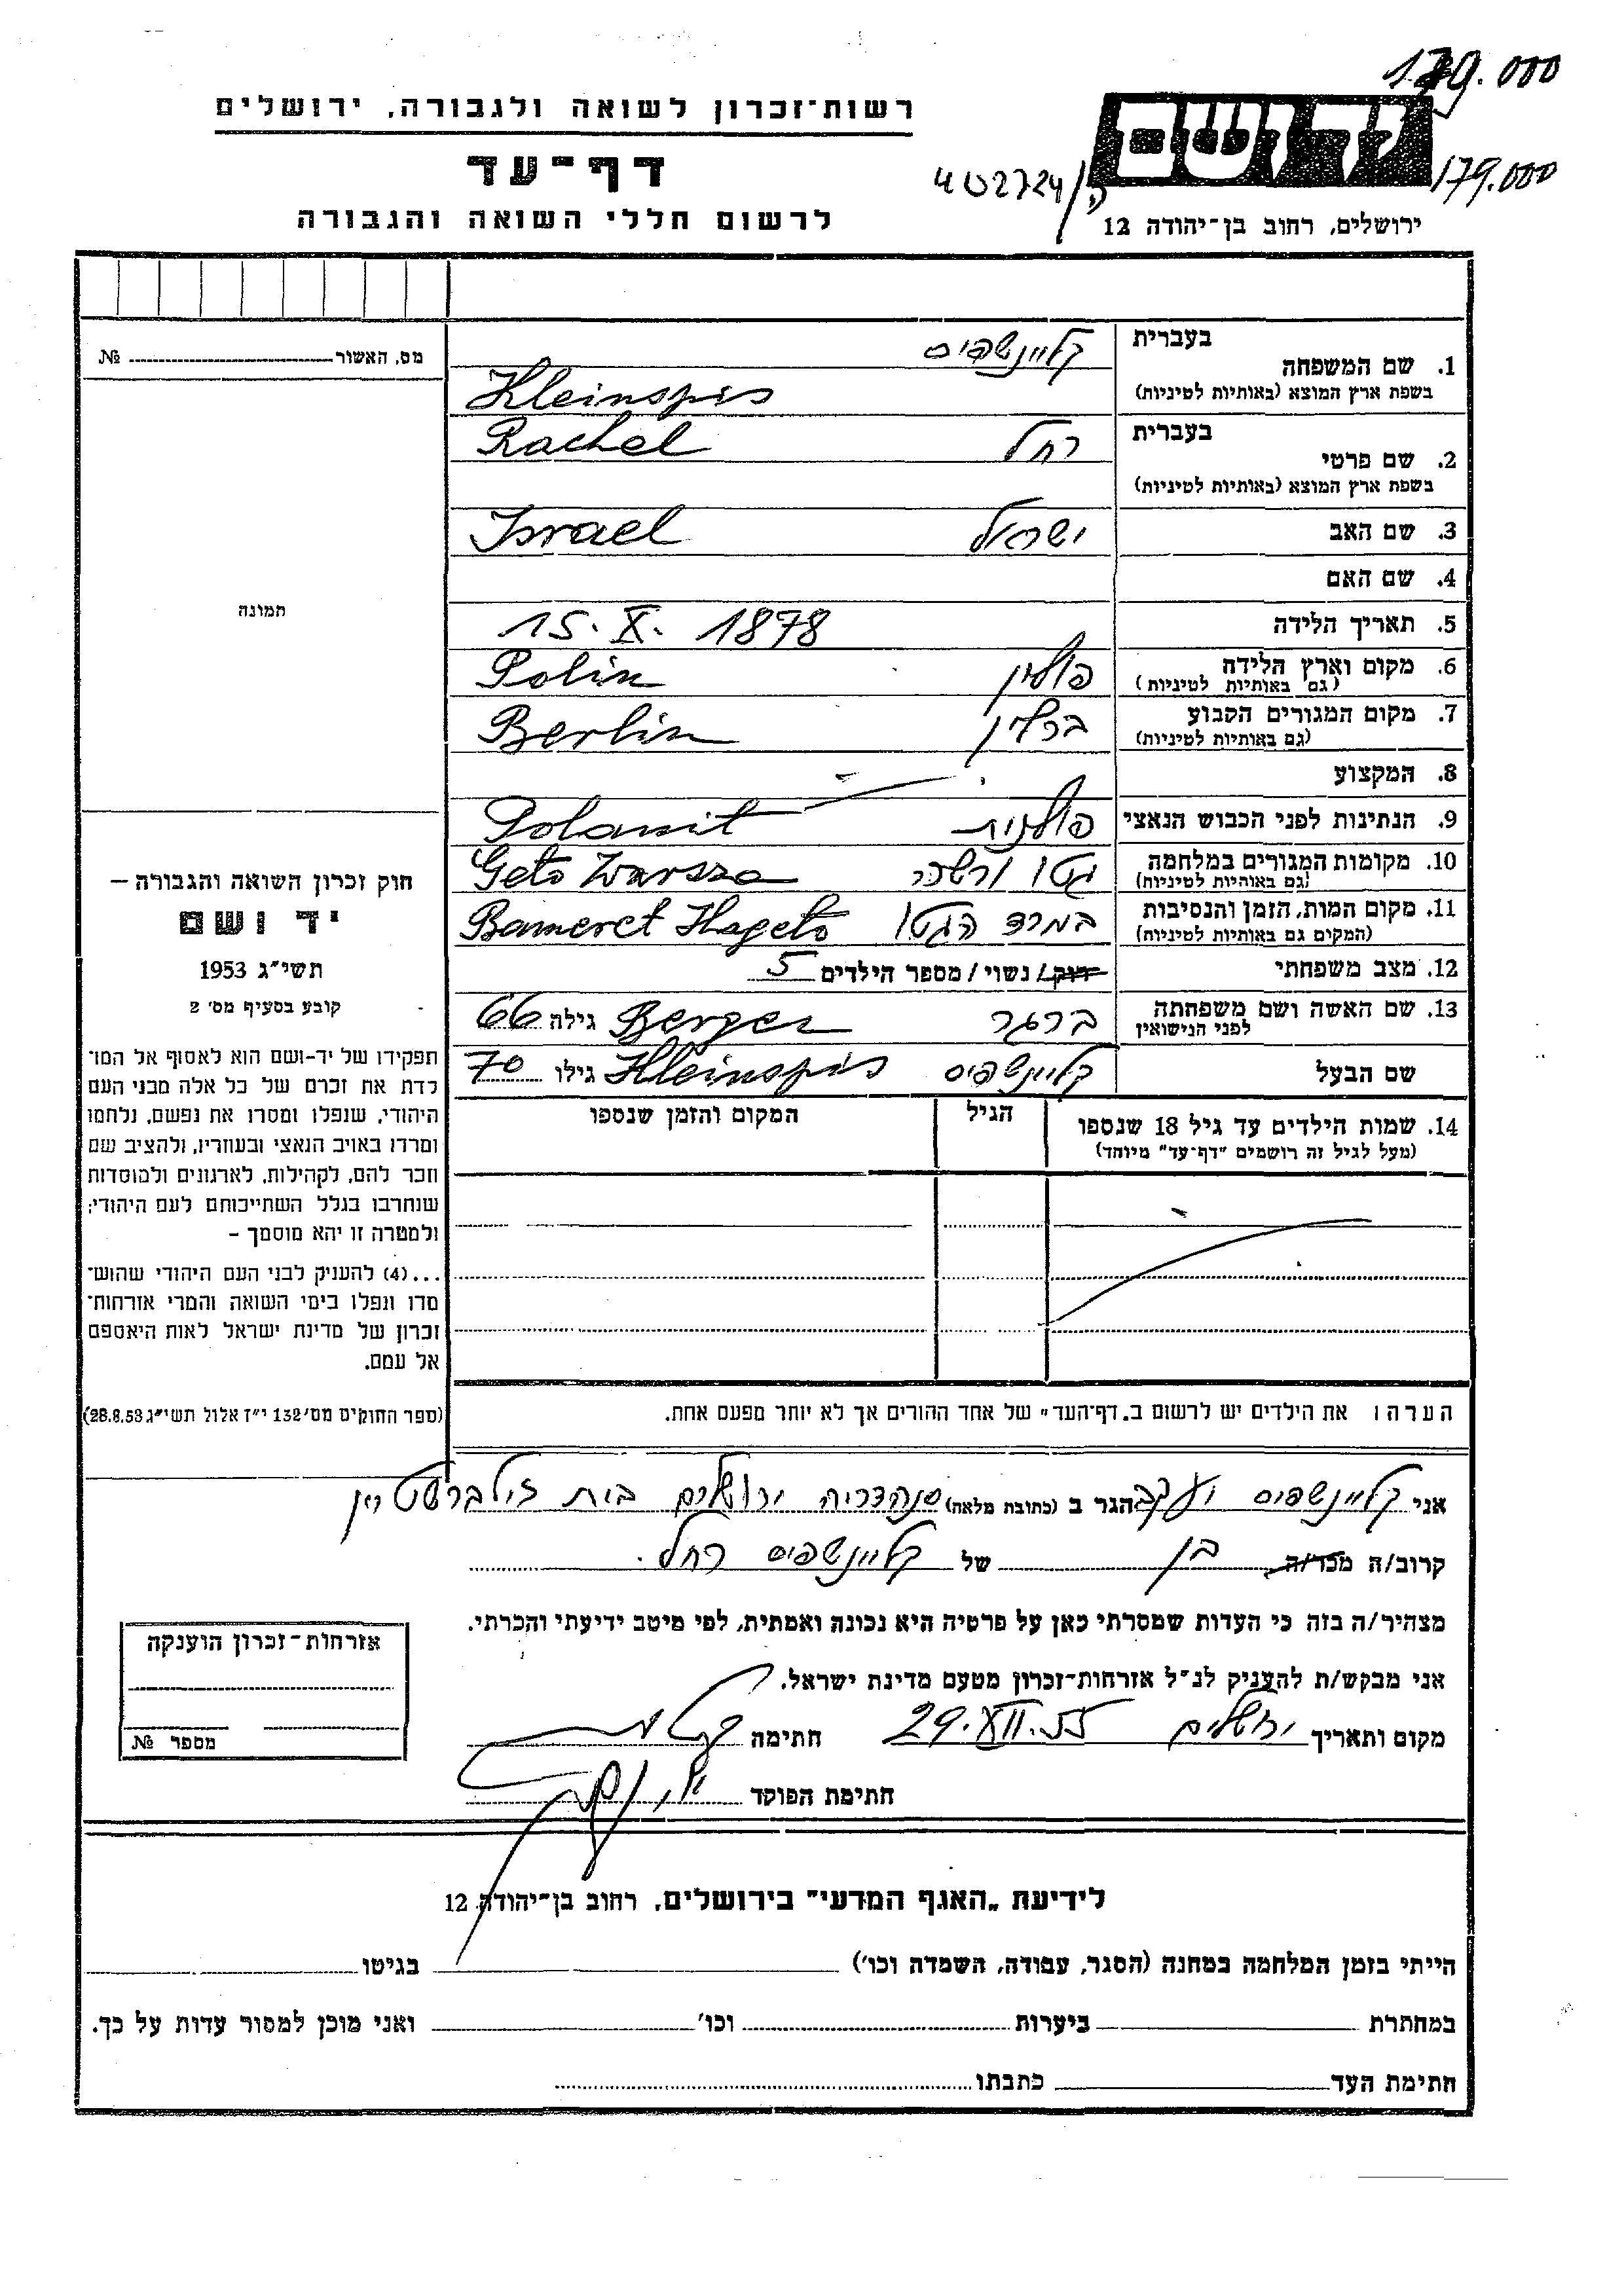 179.000
רשות־זכרון לשואה ולגבורה, ירושלים
דף־עד
לרשום חללי השואה והגבורה
ידושם
179.000
402724/ק
ירושלים, רחוב בן־יהודה 12
מס. האשור № 
בעברית
1. שם המשפחה
בשפת ארץ המוצא (באותיות לטיניות)
קליינשפיס
Kleinspis
בעברית
2. שם פרטי
בשפת ארץ המוצא (באותיות לטיניות)
רחל Rachel
3. שם האב ישראל Israel
4. שם האם
5. תאריך הלידה 15. X. 1878
6. מקום וארץ הלידה פולין Polin
(גם באותיות לטיניות)
7. מקום המגורים הקבוע ברלין Berlin
(גם באותיות לטיניות)
8. המקצוע
9. הנתינות לפני הכבוש הנאצי פולנית Polanit
10. מקומות המגורים במלחמה גטו ורשה Geto Warsza
(גם באותיות לטיניות)
11. מקום המות, הזמן והנסיבות במרד הגטו Bameret Hageto
(המקום גם באותיות לטיניות)
12. מצב משפחתי רווק/ נשוי/ מספר הילדים 5
13. שם האשה ושם משפחתה ברגר Berger גילה 66
לפני הנישואין
שם הבעל קליינשפיס Kleinspis גילו 70
14. שמות הילדים עד גיל 18 שנספו הגיל המקום והזמן שנספו
(מעל לגיל זה רושמים "דף־עד" מיוחד)
תמונה
חוק זכרון השואה והגבורה –
יד ושם
תשי״ג 1953
קובע בסעיף מס׳ 2
תפקידו של יד־ושם הוא לאסוף אל המו־
לדת את זכרם של כל אלה מבני העם
היהודי, שנפלו ומסרו את נפשם, נלחמו
ומרדו באויב הנאצי ובעוזריו, ולהציב שם
וזכר להם, לקהילות, לארגונים ולמוסדות
שנחרבו בגלל השתייכותם לעם היהודי;
ולמטרה זו יהא מוסמך –
...(4) להעניק לבני העם היהודי שהוש־
מדו ונפלו בימי השואה והמרי אזרחות־
זכרון של מדינת ישראל לאות היאספם
אל עמם.
(ספר החוקים מס׳ 132 י״ז אלול תשי״ג 28.8.53)
הערה: את הילדים יש לרשום ב„דף־העד״ של אחד ההורים אך לא יותר מפעם אחת.
אני קליינשפיס יעקב הגר ב (כתובת מלאה) סנהדריה ירושלים בית זילברשטיין
קרוב/ה מכר/ה בן של קליינשפיס רחל.
מצהיר/ה בזה כי העדות שמסרתי כאן על פרטיה היא נכונה ואמתית, לפי מיטב ידיעתי והכרתי.
אני מבקש/ת להעניק לנ״ל אזרחות־זכרון מטעם מדינת ישראל.
מקום ותאריך ירושלים 29.XII.55 חתימה
חתימת הפוקד
אזרחות־זכרון הוענקה
מספר №
לידיעת „האגף המדעי״ בירושלים, רחוב בן־יהודה 12
הייתי בזמן המלחמה במחנה (הסגר, עבודה, השמדה וכו׳) בגיטו
במחתרת ביערות וכו׳ ואני מוכן למסור עדות על כך.
חתימת העד כתבתו